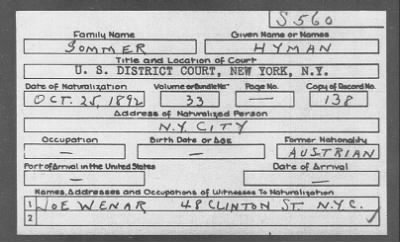 S560
Family Name Given Name or Names
SOMMER HYMAN
Title and Location of Court
U. S. DISTRICT COURT, NEW YORK, N.Y.
Date of Naturalization Volume or Bundle No. Page No. Copy of Record No.
OCT. 25, 1892 33 — 138
Address of Naturalized Person
N.Y. CITY
Occupation Birth Date or Age Former Nationality
— — AUSTRIAN
Port of Arrival in the United States Date of Arrival
— —
Names, Addresses and Occupations of Witnesses To Naturalization
1 JOE WENAR 48 CLINTON ST. N.Y.C.
2